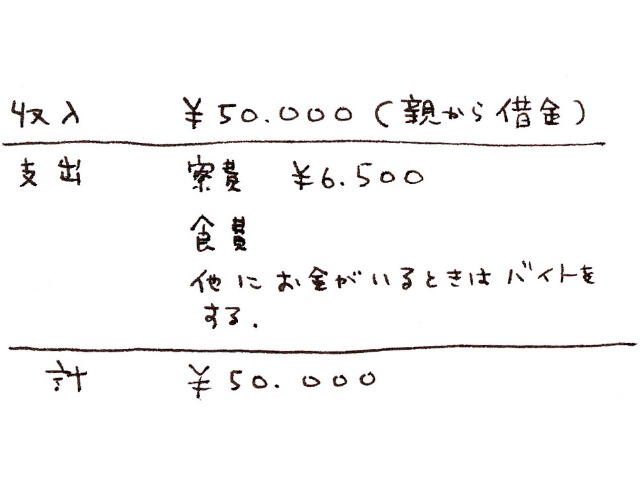 収入 ¥50.000(親から借金)
支出 寮費 ¥6.500
食費
他にお金がいるときはバイトを
する.
計 ¥50.000